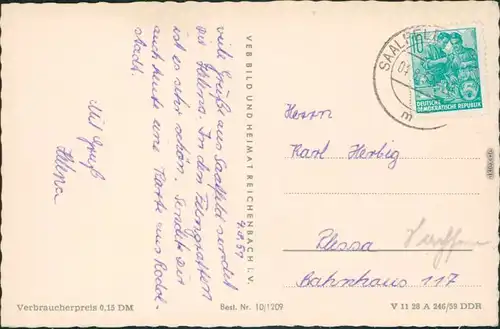 4.8.59
Viele Grüße aus Saalfeld sendet
Dir Helena. In den Feengrotten
ist es sehr schön. Sendete Dir
auch heute eine Karte aus Rudol-
stadt.
Mit Gruß
Helena
VEB BILD UND HEIMAT REICHENBACH I. V.
SAALFELD
m
10
DEUTSCHE
DEMOKRATISCHE REPUBLIK
Herrn
Karl Herbig
Plessa
Bahnhaus 117
Verbraucherpreis 0,15 DM
Best. Nr. 10/1209
V 11 28 A 246/59 DDR